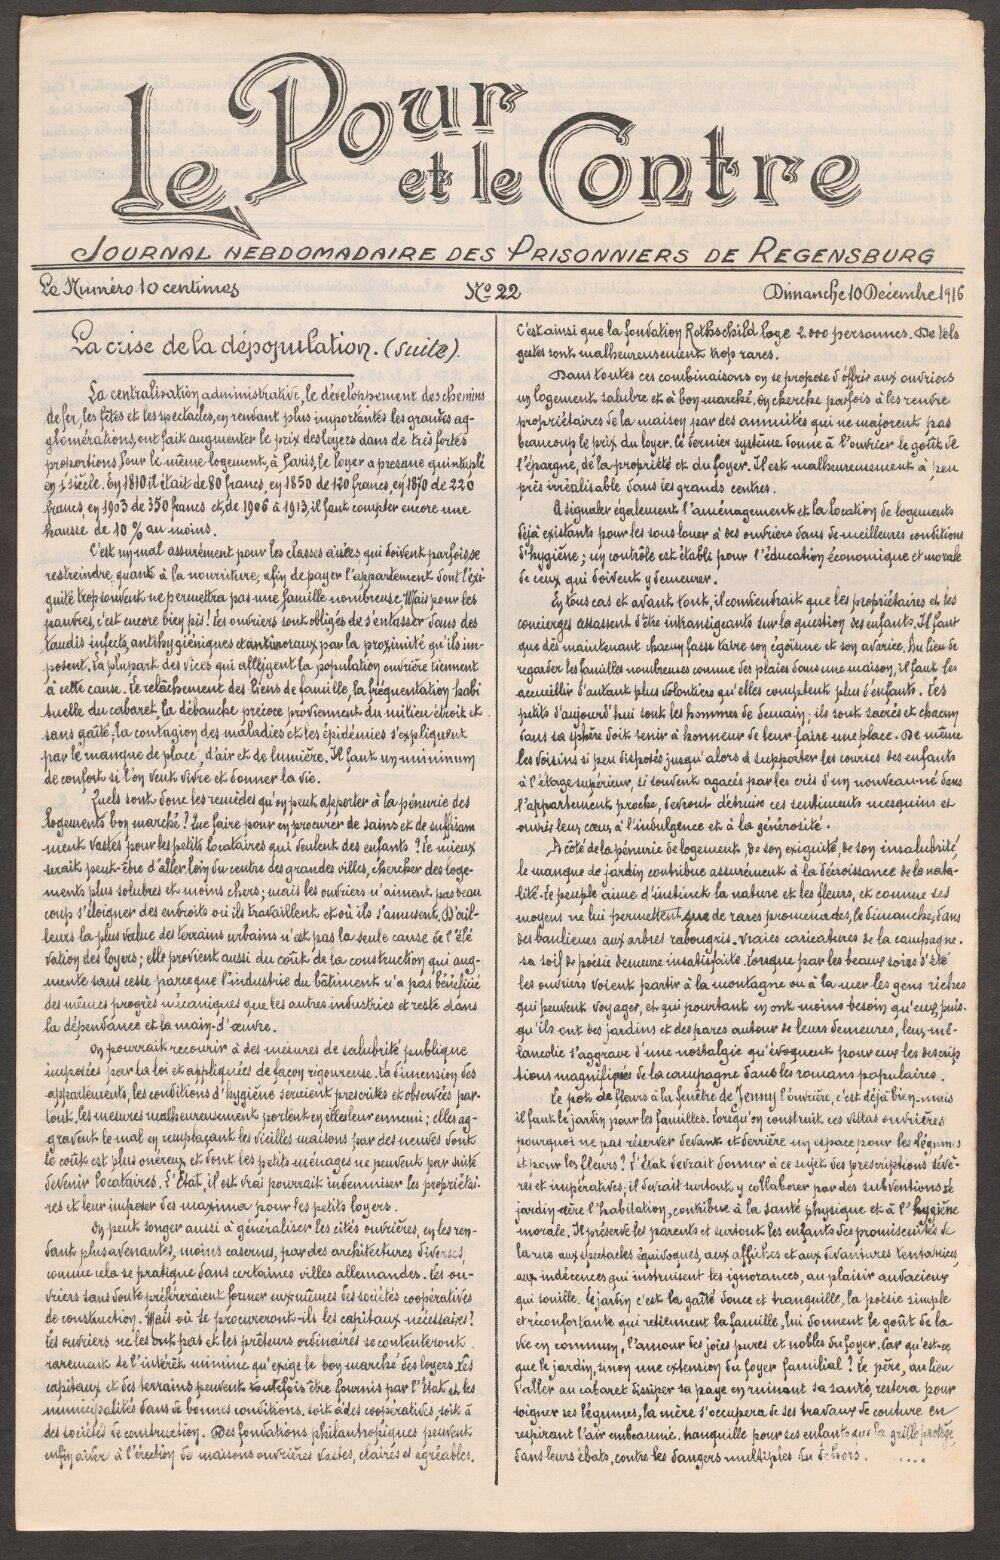 Le Pour et le Contre
Journal hebdomadaire des Prisonniers de Regensburg
Le Numéro 10 centimes
No 22
Dimanche 10 Décembre 1916
La crise de la dépopulation. (suite).
La centralisation administrative, le développement des chemins
de fer, les fêtes et les spectacles, en rendant plus importantes les grandes ag-
glomérations, ont fait augmenter le prix des loyers dans de très fortes
proportions. Pour le même logement, à Paris, le loyer a presque quintuplé
en 1 siècle. En 1810 il était de 80 francs, en 1850 de 120 francs, en 1870 de 220
francs, en 1903 de 350 francs et, de 1906 à 1913, il faut compter encore une
hausse de 10 % au moins.
C'est un mal assurément pour les classes aisées qui doivent parfois se
restreindre, quant à la nourriture, afin de payer l'appartement dont l'exi-
guité trop souvent ne permettra pas une famille nombreuse. Mais pour les
pauvres, c'est encore bien pis! Les ouvriers sont obligés de s'entasser dans des
taudis infects, antihygiéniques et antimoraux par la proximité qu'ils im-
posent. La plupart des vices qui affligent la population ouvrière tiennent
à cette cause. Le relâchement des liens de famille, la fréquentation habi
tuelle du cabaret, la débauche précoce proviennent du milieu étroit et
sans gaîté; la contagion des maladies et les épidémies s'expliquent
par le manque de place, d'air et de lumière. Il faut un minimum
de confort si l'on veut vivre et donner la vie.
Quels sont donc les remèdes qu'on peut apporter à la pénurie des
logements bon marché? Que faire pour en procurer de sains et de suffisam
ment vastes pour les petits locataires qui veulent des enfants? Le mieux
serait peut-être d'aller loin du centre des grandes villes, chercher des loge-
ments plus salubres et moins chers; mais les ouvriers n'aiment pas beau
coup s'éloigner des endroits où ils travaillent et où ils s'amusent. D'ail-
leurs la plus value des terrains urbains n'est pas la seule cause de l'élé
vation des loyers; elle provient aussi du coût de la construction qui aug-
mente sans cesse parce que l'industrie du bâtiment n'a pas bénéficié
des mêmes progrès mécaniques que les autres industries et reste dans
la dépendance et la main-d'œuvre.
On pourrait recourir à des mesures de salubrité publique
imposées par la loi et appliquées de façon rigoureuse. La dimension des
appartements, les conditions d'hygiène seraient prescrites et observées par-
tout. Les mesures malheureusement portent en elles leur ennemi; elles ag-
gravent le mal en remplaçant les vieilles maisons par des neuves dont
le coût est plus onéreux et dont les petits ménages ne peuvent par suite
devenir locataires. L'Etat, il est vrai pourrait indemniser les propriétai-
res et leur imposer des maxima pour les petits loyers.
On peut songer aussi à généraliser les cités ouvrières, en les ren-
dant plus avenantes, moins casernes, par des architectures diverses,
comme cela se pratique dans certaines villes allemandes. Les ou-
vriers sans doute préféreraient former eux mêmes des sociétés coopératives
de construction. Mais où se procureront-ils les capitaux nécessaires?
Les ouvriers ne les ont pas et les prêteurs ordinaires se contenteront
rarement de l'intérêt minime qu'exige le bon marché des loyers. Les
capitaux et des terrains peuvent toutefois être fournis par l'Etat et les
municipalités dans de bonnes conditions, soit à des coopératives, soit à
des sociétés de construction. Des fondations philantropiques peuvent
enfin aider à l'érection de maisons ouvrières vastes, claires et agréables.
C'est ainsi que la fondation Rothschild loge 2.000 personnes. De tels
gestes sont malheureusement trop rares.
Dans toutes ces combinaisons on se propose d'offrir aux ouvriers
un logement salubre et à bon marché, on cherche parfois à les rendre
propriétaires de la maison par des annuités qui ne majorent pas
beaucoup le prix du loyer. Ce dernier système donne à l'ouvrier le goût de
l'épargne, de la propriété et du foyer. Il est malheureusement à peu
près irréalisable dans les grands centres.
A signaler également l'aménagement et la location de logements
déjà existants pour les sous louer à des ouvriers dans de meilleures conditions
d'hygiène; un contrôle est établi pour l'éducation économique et morale
de ceux qui doivent y demeurer.
En tous cas et avant tout, il conviendrait que les propriétaires et les
concierges cessassent d'être intransigeants sur la question des enfants. Il faut
que dès maintenant chacun fasse taire son égoïsme et son avarice. Au lieu de
regarder les familles nombreuses comme des plaies dans une maison, il faut les
accueillir d'autant plus volontiers qu'elles comptent plus d'enfants. Les
petits d'aujourd'hui sont les hommes de demain; ils sont sacrés et chacun
dans sa sphère doit tenir à honneur de leur faire une place. De même
les voisins si peu disposés jusqu'alors à supporter les courses des enfants
à l'étage supérieur, si souvent agacés par les cris d'un nouveau né dans
l'appartement proche, devront détruire ces sentiments mesquins et
ouvrir leur cœur à l'indulgence et à la générosité.
A côté de la pénurie de logement, de son exiguité, de son insalubrité,
le manque de jardin contribue assurément à la décroissance de la nata-
lité. Le peuple aime d'instinct la nature et les fleurs, et comme ses
moyens ne lui permettent que de rares promenades, le dimanche, dans
des banlieues aux arbres rabougris, vraies caricatures de la campagne,
sa soif de poésie demeure insatisfaite. Lorsque par les beaux soirs d'été
les ouvriers voient partir à la montagne ou à la mer les gens riches
qui peuvent voyager, et qui pourtant en ont moins besoin qu'eux, puis-
qu'ils ont des jardins et des parcs autour de leurs demeures, leur mé-
lancolie s'aggrave d'une nostalgie qu'évoquent pour eux les descrip
tions magnifiques de la campagne dans les romans populaires.
Le pot de fleurs à la fenêtre de Jenny l'ouvrière, c'est déjà bien, mais
il faut le jardin pour les familles. Lorsqu'on construit ces villas ouvrières
pourquoi ne pas réserver devant et derrière un espace pour les légumes
et pour les fleurs? L'Etat devrait donner à ce sujet des prescriptions sévè-
res et impératives; il devrait surtout y collaborer par des subventions. Le
jardin aère l'habitation, contribue à la santé physique et à l'hygiène
morale. Il préserve les parents et surtout les enfants des promiscuités de
la rue aux spectacles équivoques, aux affiches et aux devantures tentatrices,
aux indécences qui instruisent les ignorances, au plaisir audacieux
qui souille. Le jardin c'est la gaîté douce et tranquille, la poésie simple
et réconfortante qui retiennent la famille, lui donnent le goût de la
vie en commun, l'amour des joies pures et nobles du foyer. Car qu'est-ce
que le jardin, sinon une extension du foyer familial? Le père, au lieu
d'aller au cabaret dissiper sa paye en ruinant sa santé, restera pour
soigner ses légumes, la mère s'occupera de ses travaux de couture en
respirant l'air embaumé, tranquille pour ses enfants que la grille protège,
dans leurs ébats, contre les dangers multiples du dehors. .....